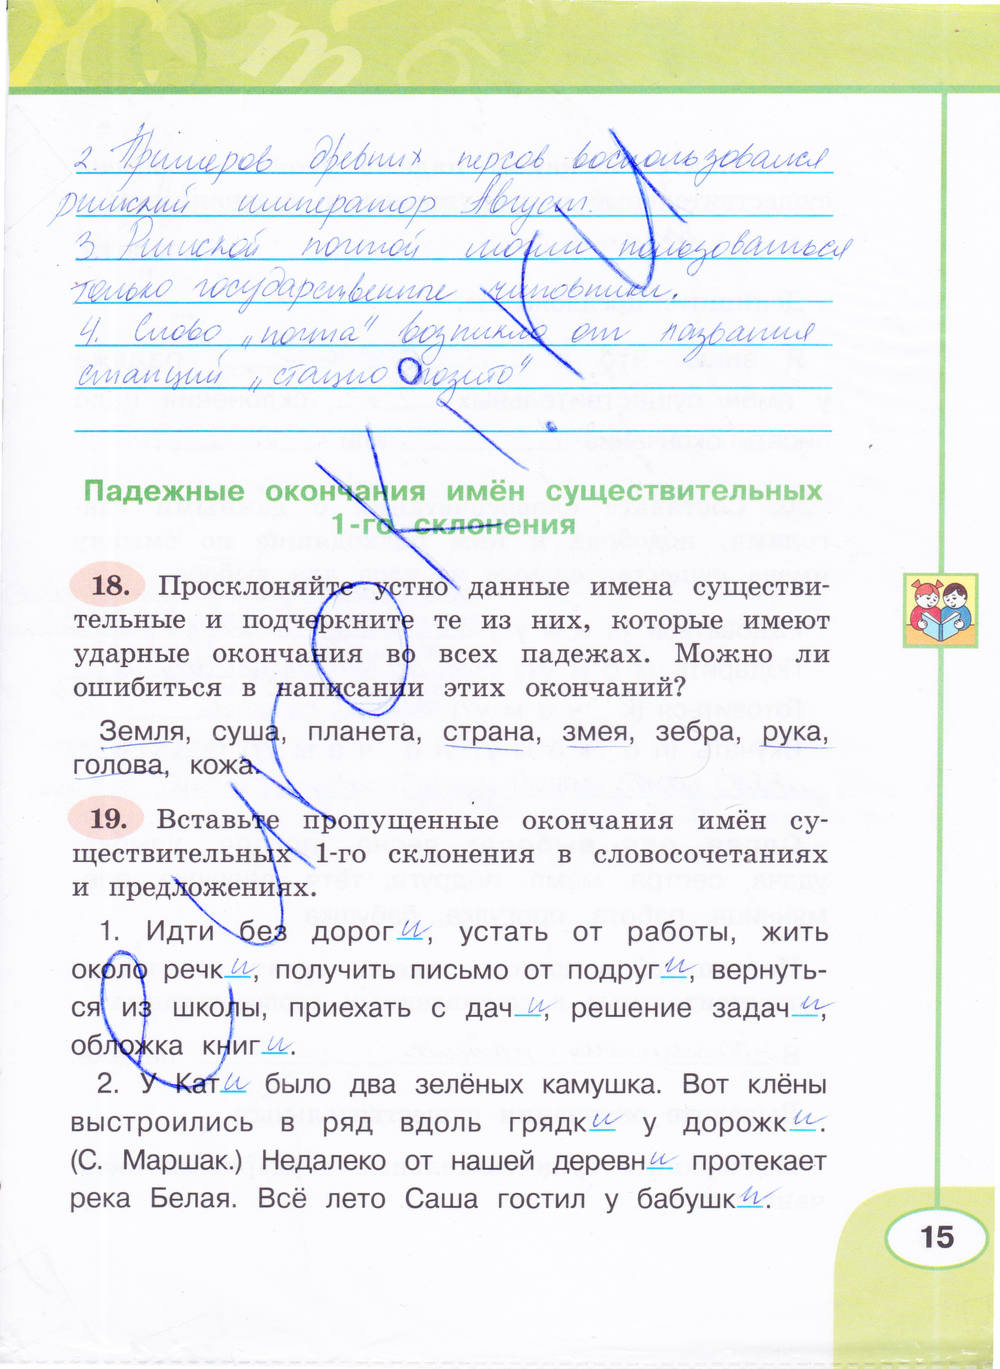 2. Примеров древних персов воспользовался
римский император Август.
3. Римской почтой могли пользоваться
только государственные чиновники.
4. Слово „почта“ возникло от названия
станций „стацио позито“
Падежные окончания имён существительных
1-го склонения
18. Просклоняйте устно данные имена существи-
тельные и подчеркните те из них, которые имеют
ударные окончания во всех падежах. Можно ли
ошибиться в написании этих окончаний?
Земля, суша, планета, страна, змея, зебра, рука,
голова, кожа.
19. Вставьте пропущенные окончания имён су-
ществительных 1-го склонения в словосочетаниях
и предложениях.
1. Идти без дороги, устать от работы, жить
около речки, получить письмо от подруги, вернуть-
ся из школы, приехать с дачи, решение задачи,
обложка книги.
2. У Кати было два зелёных камушка. Вот клёны
выстроились в ряд вдоль грядки у дорожки.
(С. Маршак.) Недалеко от нашей деревни протекает
река Белая. Всё лето Саша гостил у бабушки.
15